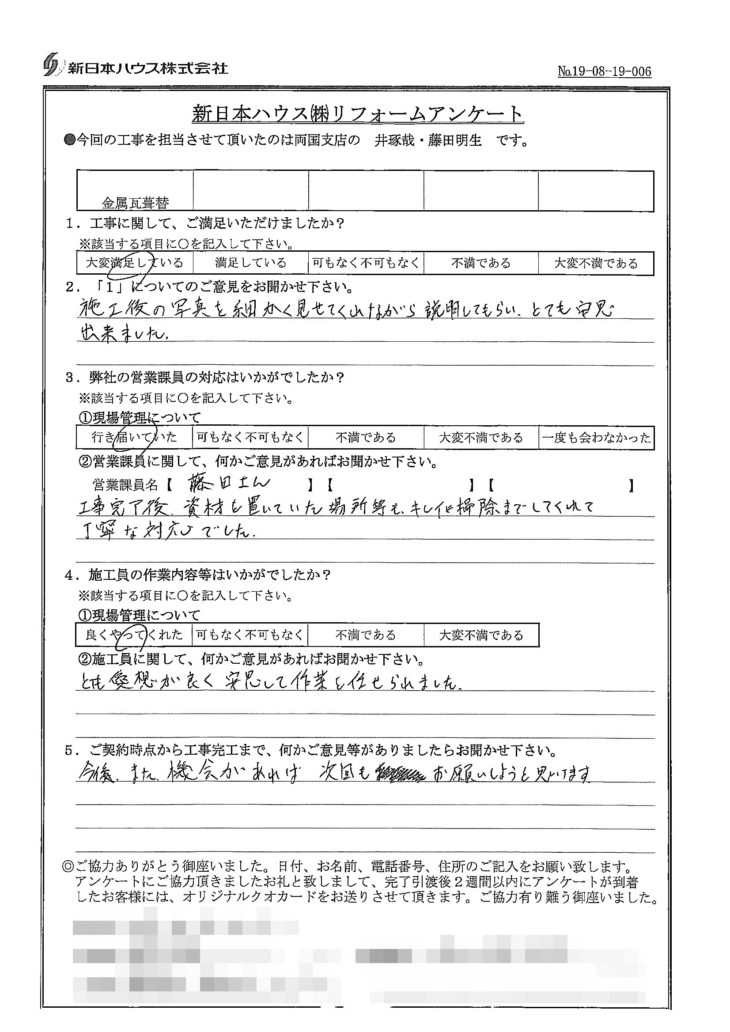 新日本ハウス株式会社
No.19-08-19-006
新日本ハウス㈱リフォームアンケート
●今回の工事を担当させて頂いたのは両国支店の 井琢哉・藤田明生 です。
金属瓦葺替
1．工事に関して、ご満足いただけましたか？
※該当する項目に〇を記入して下さい。
大変満足している 満足している 可もなく不可もなく 不満である 大変不満である
2．「1」についてのご意見をお聞かせ下さい。
施工後の写真を細かく見せてくれながら説明してもらい、とても安心
出来ました。
3．弊社の営業課員の対応はいかがでしたか？
※該当する項目に〇を記入して下さい。
①現場管理について
行き届いていた 可もなく不可もなく 不満である 大変不満である 一度も会わなかった
②営業課員に関して、何かご意見があればお聞かせ下さい。
営業課員名【 藤田さん 】【 】【 】
工事完了後、資材を置いていた場所等も、キレイに掃除までしてくれて
丁寧な対応でした。
4．施工員の作業内容等はいかがでしたか？
※該当する項目に〇を記入して下さい。
①現場管理について
良くやってくれた 可もなく不可もなく 不満である 大変不満である
②施工員に関して、何かご意見があればお聞かせ下さい。
とても愛想が良く安心して作業を任せられました。
5．ご契約時点から工事完工まで、何かご意見等がありましたらお聞かせ下さい。
今後、また、機会があれば 次回も お願いしようと思います
◎ご協力ありがとう御座いました。日付、お名前、電話番号、住所のご記入をお願い致します。
アンケートにご協力頂きましたお礼と致しまして、完了引渡後２週間以内にアンケートが到着
したお客様には、オリジナルクオカードをお送りさせて頂きます。ご協力有り難う御座いました。